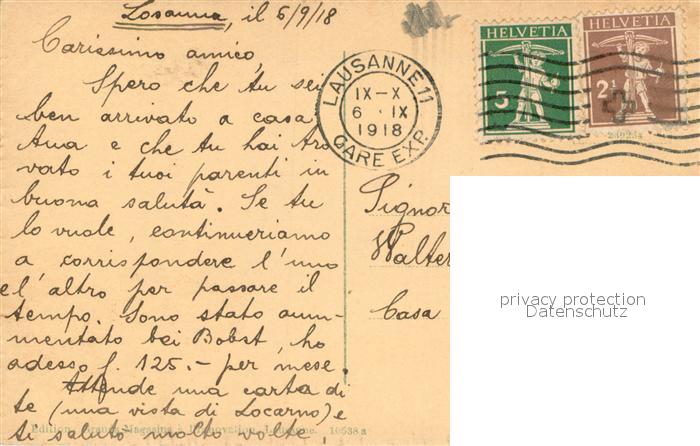 Losanna, il 6/9/18
Carissimo amico,
Spero che tu sei
ben arrivato a casa
tua e che tu hai tro
vato i tuoi parenti in
buona salutà. Se tu
lo vuole, continueriamo
a corrispondere l'uno
e l'altro per passare il
tempo. Sono stato aum-
mentato bei Bobst, ho
adesso f. 125.- per mese.
Attende una carta di
te (una vista di Locarno) e
ti saluto molto volte,
Edition Grands Magasins à l'Innovation, Lausanne. 10538a
LAUSANNE 11
IX-X
6 · IX
1918
GARE EXP.
HELVETIA
5
HELVETIA
2½
Signor
Walter
Casa
privacy protection
Datenschutz